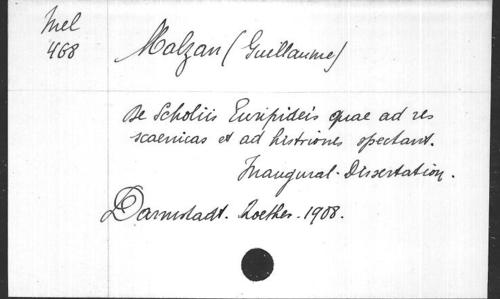 Mel
468
Malzan (Guillaume)
De Scholiis Euripideis quae ad res
scaenicas et ad histriones spectant.
Inaugural-Dissertation.
Darmstadt. Roether. 1908.